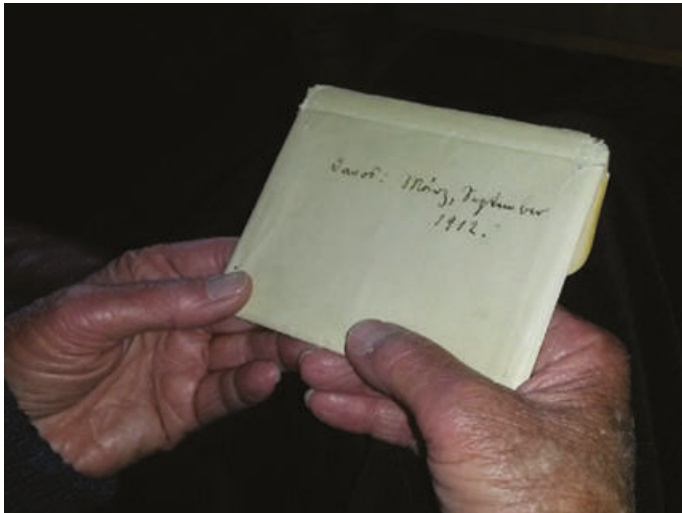 Davos: März, September
1912.